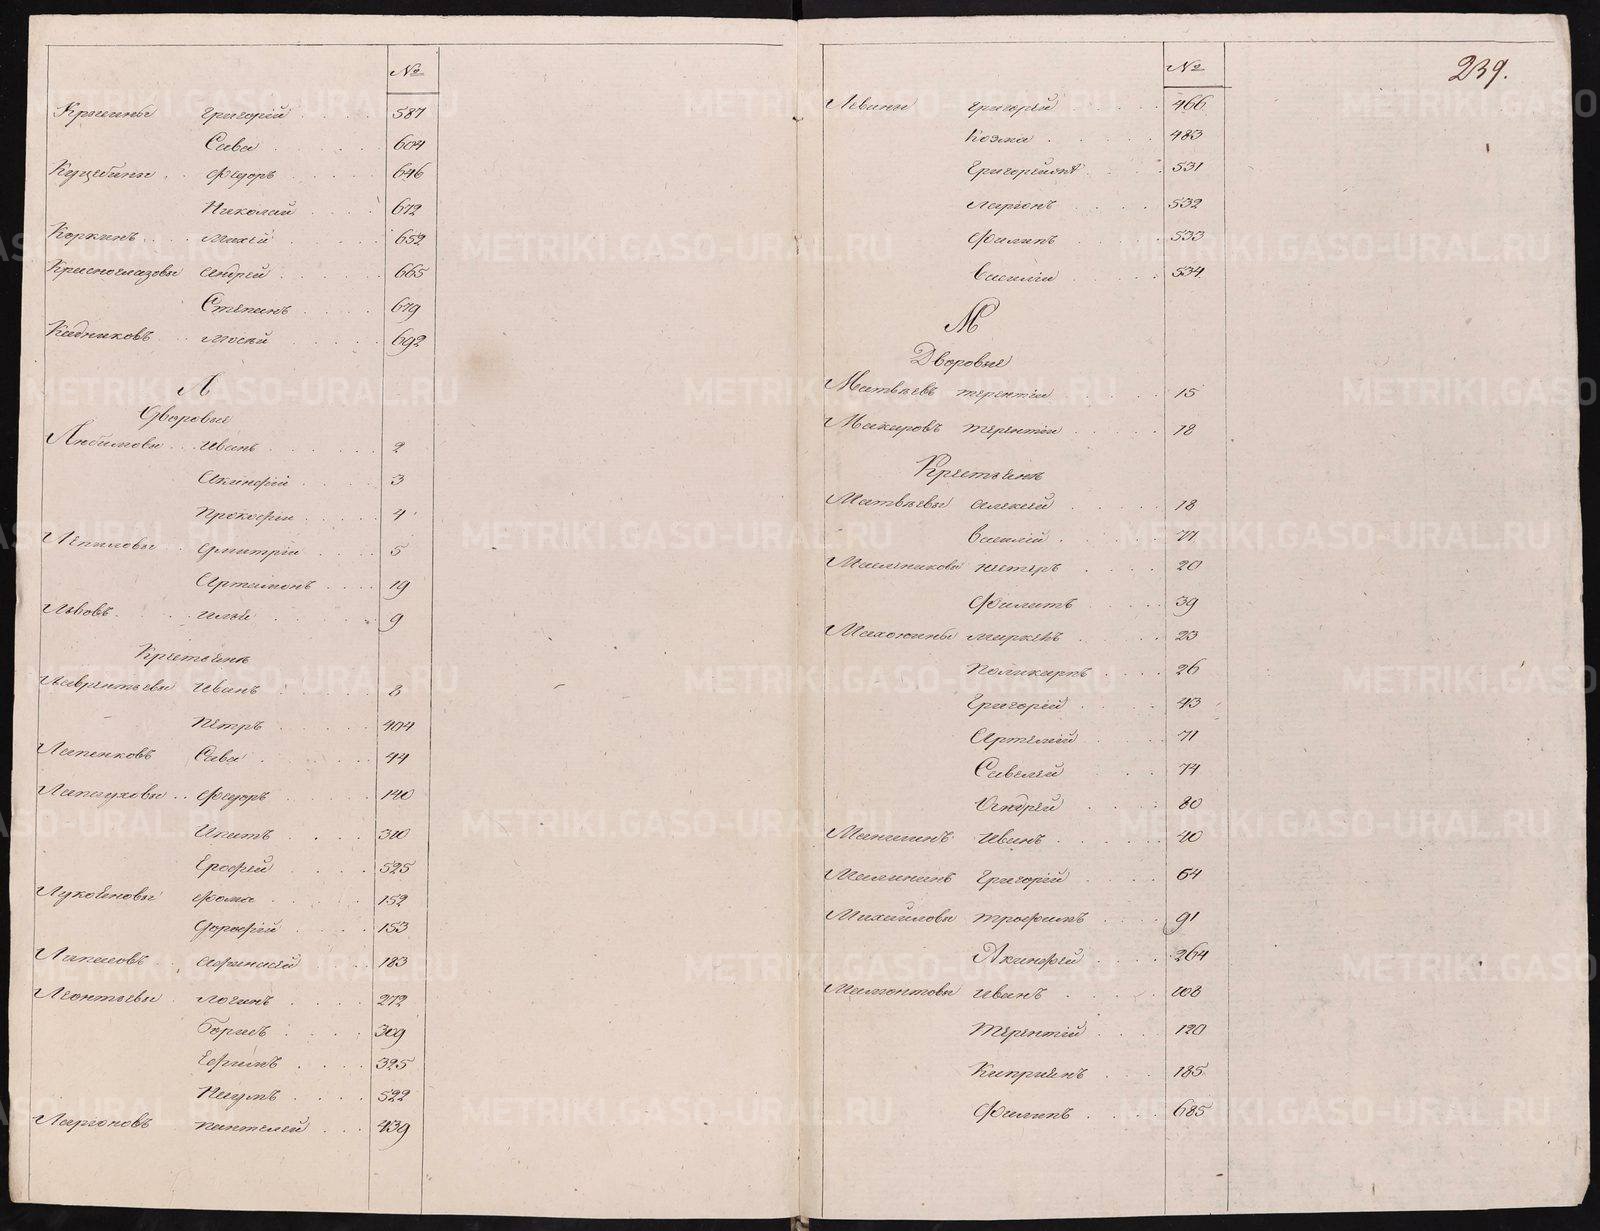 №
Григорій 587
Сава 604
Федоръ 646
Николай 672
Коркинъ Михей 652
Красноглазовы Андрей 665
Степанъ 679
Кадниковъ Мосѣй 692
Л
Дворовые
Любимовы Иванъ 2
Акинфій 3
Прокофій 4
Лепиловы Дмитрій 5
Артамонъ 19
Львовъ 9
Крестьяне
Лаврентьевы Иванъ 8
Петръ 404
Лапенковъ Сава 44
Лапауховы Федоръ 140
Ипатъ 310
Ерофей 525
Лукояновы Фома 152
Дорофій 153
Афанасій 183
Леонтьевы Логинъ 272
Борисъ 309
Ефимъ 325
Наумъ 522
Ларіоновъ Пантелей 439
№
239.
Левины Григорій 466
Козма 483
Григорій 531
Ларіонъ 532
Филипъ 533
Василій 534
М
Дворовые
Матвѣевъ Терентій 15
Макаровъ Терентій 18
Крестьяне
Матвѣевы Алексѣй 18
Василій 77
Маслениковы Нестеръ 20
Филатъ 39
23
Поликарпъ 26
Григорій 43
Артемій 71
Савелій 74
Андрей 80
Маншинъ Иванъ 40
Малининъ Григорій 64
Михайловы Трофимъ 91
Акинфій 264
Мамонтовы Иванъ 108
Терентій 120
Кипріянъ 185
Филипъ 685
METRIKI.GASO-URAL.RU